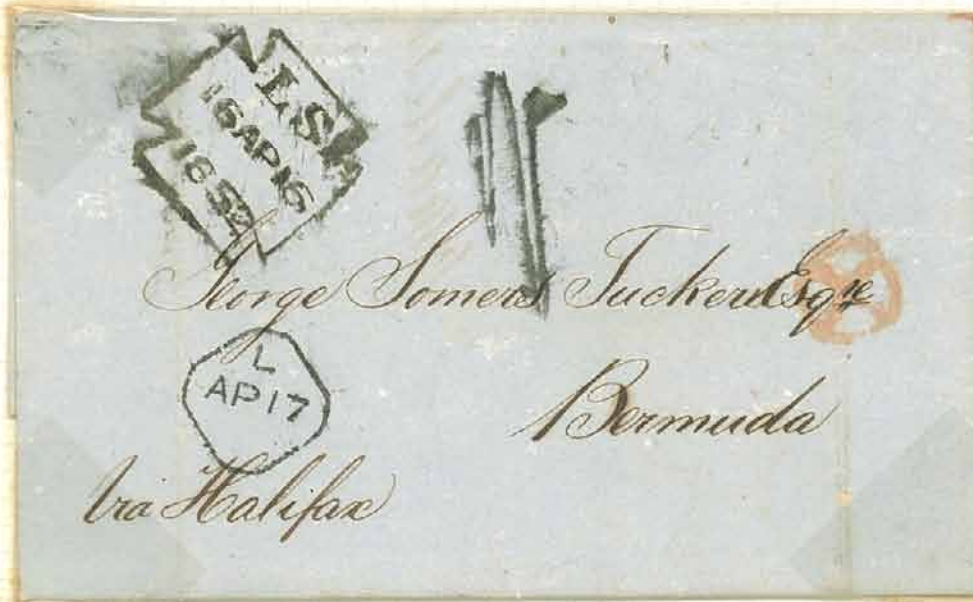 L.S
16AP16
185
George Somers Tucker Esqre
L
AP17
Bermuda
Via Halifax